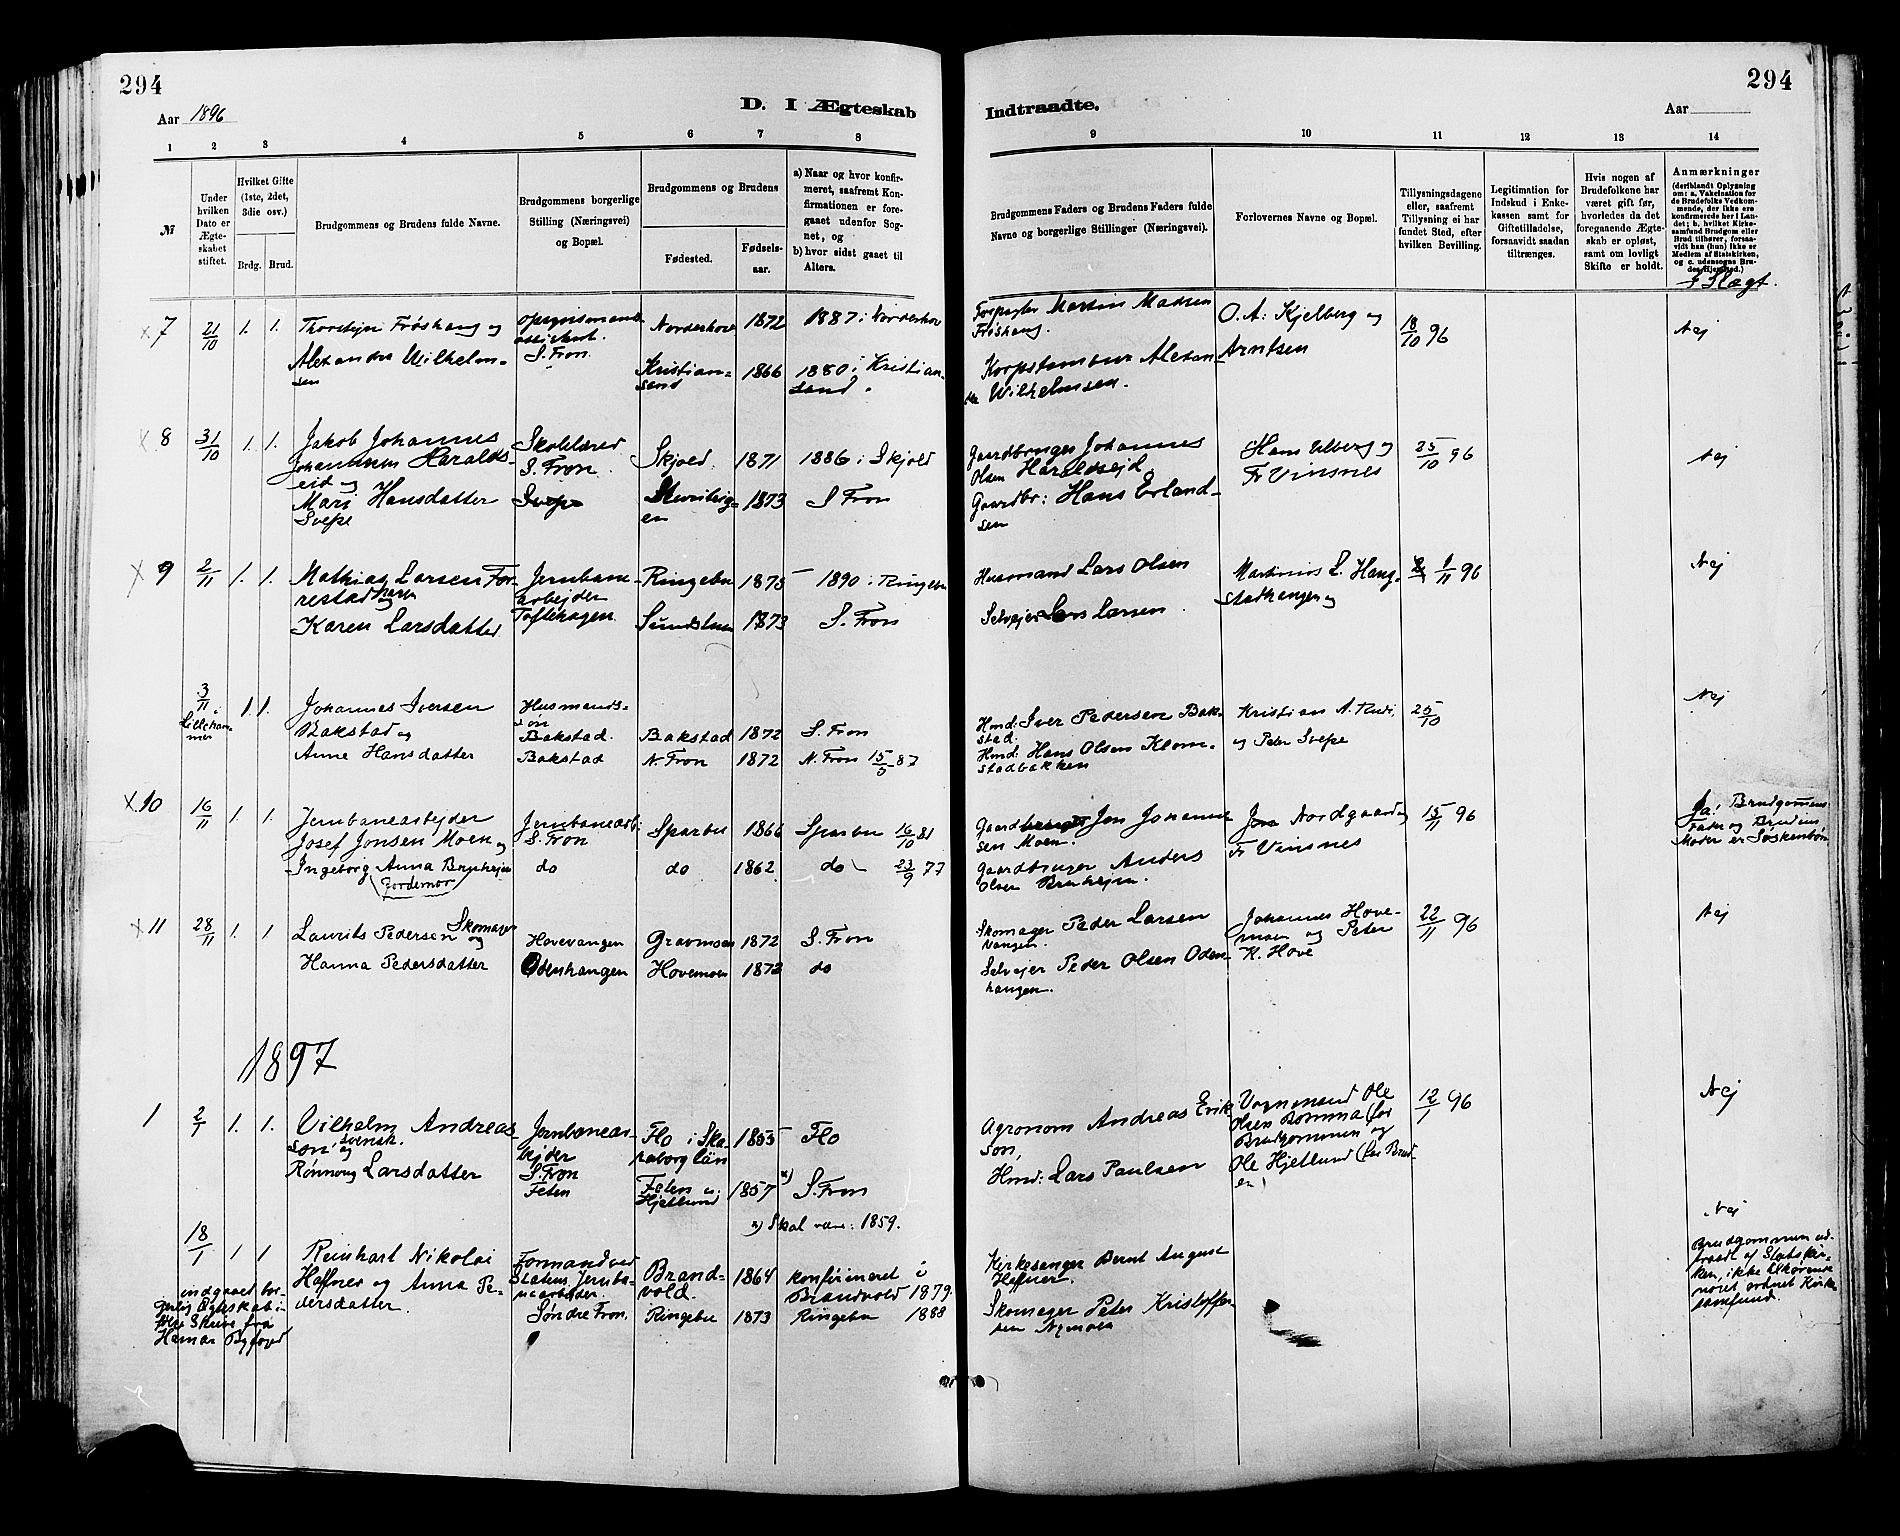 294
294
Aar 1896
D. I Ægteskab
Indtraadte.
Aar
1 2 3 4 5 6 7 8
9 10 11 12 13 14
№
Under hvilken Dato er Ægteskabet stiftet.
Hvilket Gifte (1ste, 2det, 3die osv.)
Brdg. Brud.
Brudgommens og Brudens fulde Navne.
Brudgommens borgerlige Stilling (Næringsvei) og Bopæl.
Brudgommens og Brudens
Fødested.
Fødselsaar.
a) Naar og hvor konfirmeret, saafremt Konfirmationen er foregaaet udenfor Sognet, og
b) hvor sidst gaaet til Alters.
Brudgommens Faders og Brudens Faders fulde Navne og borgerlige Stillinger (Næringsvei).
Forlovernes Navne og Bopæl.
Tillysningsdagene eller, saafremt Tillysning ei har fundet Sted, efter hvilken Bevilling.
Legitimation for Indskud i Enkekassen samt for Giftetilladelse, forsaavidt saadan tiltrænges.
Hvis nogen af Brudefolkene har været gift før, hvorledes da det foregaaende Ægteskab er opløst, samt om lovligt Skifte er holdt.
Anmærkninger
(deriblandt Oplysning om: a. Vakcination for de Brudefolks Vedkommende, der ikke ere konfirmerede her i Landet; b. hvilket Kirkesamfund Brudgom eller Brud tilhører, forsaavidt han (hun) ikke er Medlem af Statskirken, og c. udensogns Brudes Hjemsted.)
Slægt.
7 21/10 1. 1. Thorstejn Frøshaug og
Alexandra Wilhelmsen
Opsynsmand assistent. S. Fron.
Norderhov 1872 1887 i Norderhov
Kristiansand 1866 1880 i Kristiansand.
Forpagter Martin Madsen Frøshaug.
Korpstambur Alexander Wilhelmsen.
O. A. Kjelberg og Arntsen
18/10 96
Nej
8 31/10 1. 1. Jakob Johannes Johannesen Haraldseid og
Mari Hansdatter Svepe
Skolelærer S. Fron.
Svepe
Skjold 1871 1886 i Skjold
1873 S Fron
Gaardbruger Johannes Olsen Haraldsejd
Gaardbr: Hans Erlandsen
Hans Ulberg og Fr Vinsnes
25/10 96
Nej
9 2/11 1. 1. Mathias Larsen Forrestad og
Karen Larsdatter
Jernbanearbejder
Toftehagen.
Ringebu 1875 1890 i Ringebu
1873 S. Fron
Husmand Lars Olsen
Selvejer Lars Larsen.
Martinius L. Haugstadhangen og
1/11 96
Nej
3/11 i Lillehammer 1. 1. Johannes Iversen Bakstad og
Anne Hansdatter
Husmandssøn Bakstad.
Bakstad
Bakstad 1872 S. Fron
N. Fron 1872 N. Fron 15/5 87
Hmd: Iver Pedersen Bakstad.
Hmd: Hans Olsen Klomstadbakken
Kristian A. Rudi, og Peter Svepe
25/10
Nej
10 16/11 1. 1. Jernbanearbejder
Josef Jonsen Moen og
Ingeborg Anna Brunhejen
(Jordemor)
Jernbanearb: S. Fron
do
Sparbu 1866 Sparbu 16/10 81
do 1862 do 23/9 77
Gaardbruger Jon Johannesen Moen.
Gaardbruger Anders Olsen
Jon Nordgaard og
Fr Vinsnes
15/11 96
Ja! Brudgommens Fader og Brudens Moder er Søskenbørn
11 28/11 1. 1 Laurits Pedersen Skomager og
Hanna Pedersdatter
Hovevangen
Odenhangen
1872 S. Fron
Hovemoen 1872 do
Skomager Peder Larsen Vangen.
Selvejer Peder Olsen Odenhangen.
Johannes Hovemoen og Peter K. Hove
22/11 96
Nej
1897
1 2/1 1. 1. Vilhelm Andreasson, svensk. og
Rønnaug Larsdatter
Jernbanearbejder S. Fron
Feten
Flo i Skaraborg län 1855 Flo
Feten u. Hjetlund 1857 x) S. Fron
x) Skal være: 1859.
Agronom Andreas Erikson,
Hmd: Lars Paulsen
Vognmand Ole Olsen Bomma (for Brudgommen og
Ole Hjetlund (for Bruden)
12/1 96
Nej
18/1 1 1 Reinhart Nikolai Haffner og Anna Pedersdatter.
indgaaet borgerlig Ægteskab ifølge Skriv. fra Hamar Byfoged
Formand ved Statens Jernbanearbeider.
Søndre Fron.
Brandvold. 1864 konfirmeret i Brandvold 1879.
Ringebu 1873 Ringebu 1888
Kirkesanger Bernt August Heffner.
Skomager Peter Kristoffersen Nymoen
Nej
Brudgommen udtraadt af Statskirken, ikke tilhørende noget ordnet Kirkesamfund.